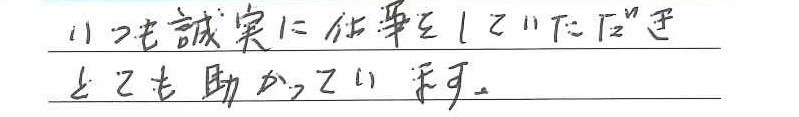 いつも誠実に仕事をしていただき
とても助かっています。